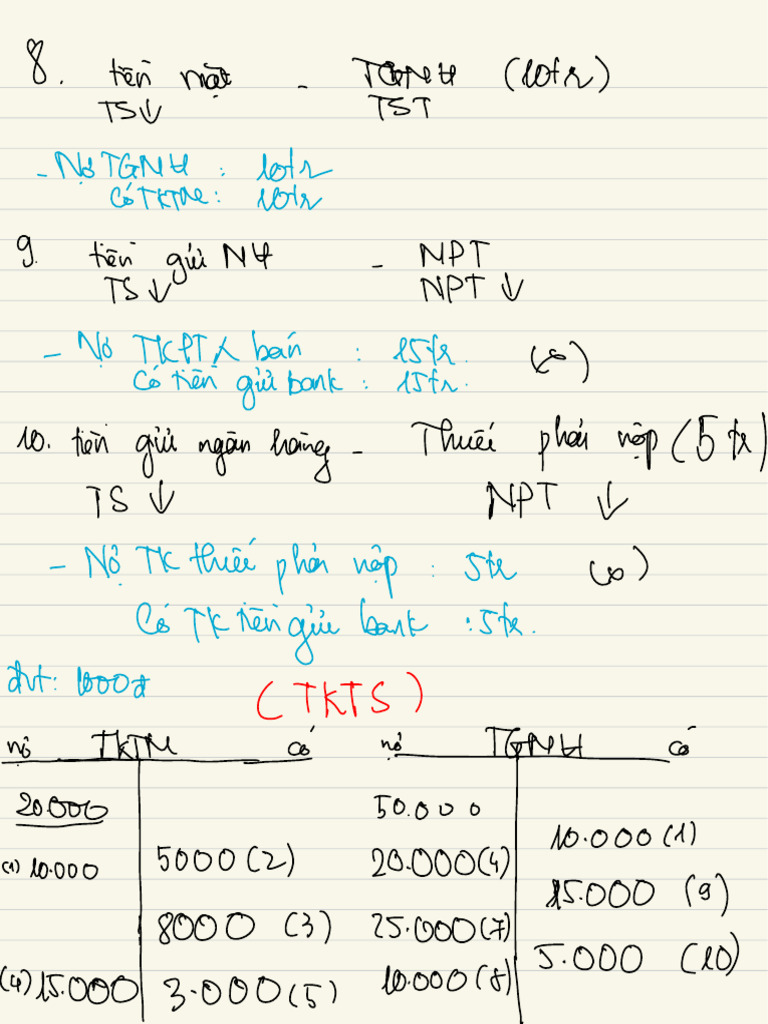 8. tiền mặt - TGNH (10tr)
TS↓ TS↑
- Nợ TGNH : 10tr
Có TKTM : 10tr
9. tiền gửi NH - NPT
TS↓ NPT↓
- Nợ TKPTX bán : 15tr.
Có tiền gửi bank : 15tr.
10. tiền gửi ngân hàng - Thuế phải nộp (5 tr)
TS↓ NPT↓
- Nợ TK thuế phải nộp : 5tr
Có TK tiền gửi bank : 5tr.
đvt: 1000đ (TKTS)
nợ TKTM có nợ TGNH có
20.000 50.000
10.000 (1)
(1) 10.000 5000 (2) 20.000 (4)
15.000 (9)
8000 (3) 25.000 (7)
5.000 (10)
(4) 15.000 3.000 (5) 10.000 (8)